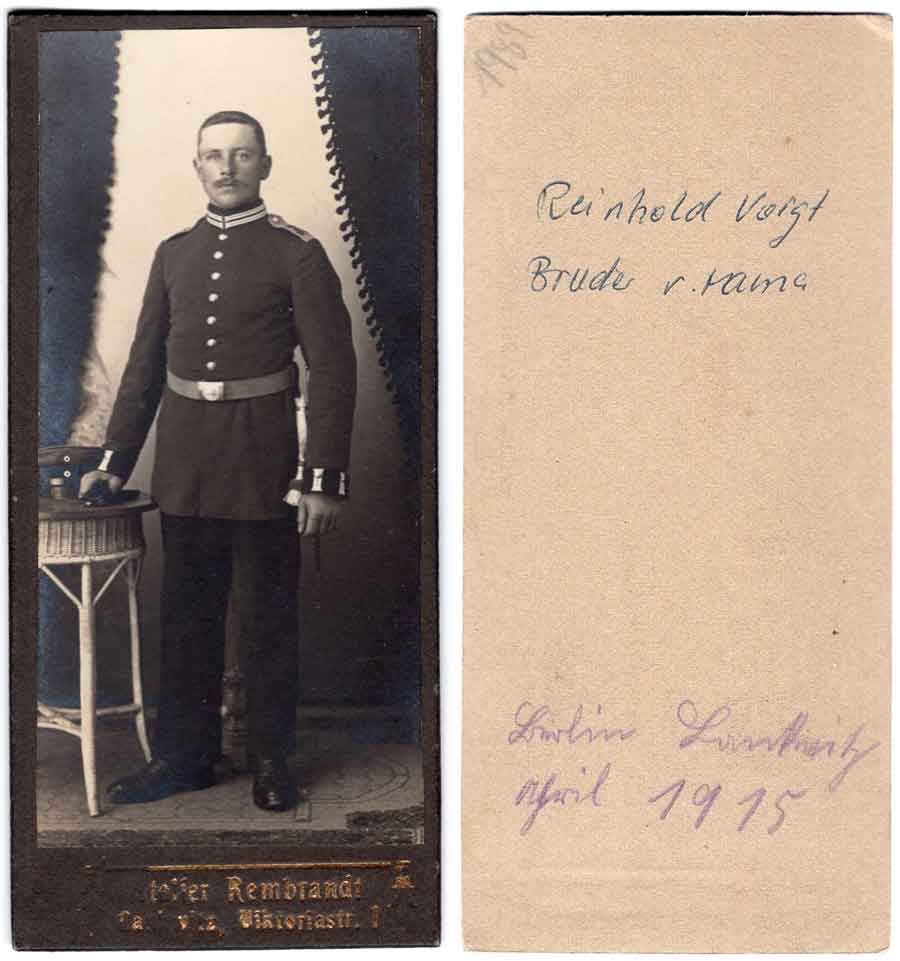 telier Rembrandt
Viktoriastr.
1989
Reinhold Voigt
Bruder v.
Berlin Lankwitz
April 1915